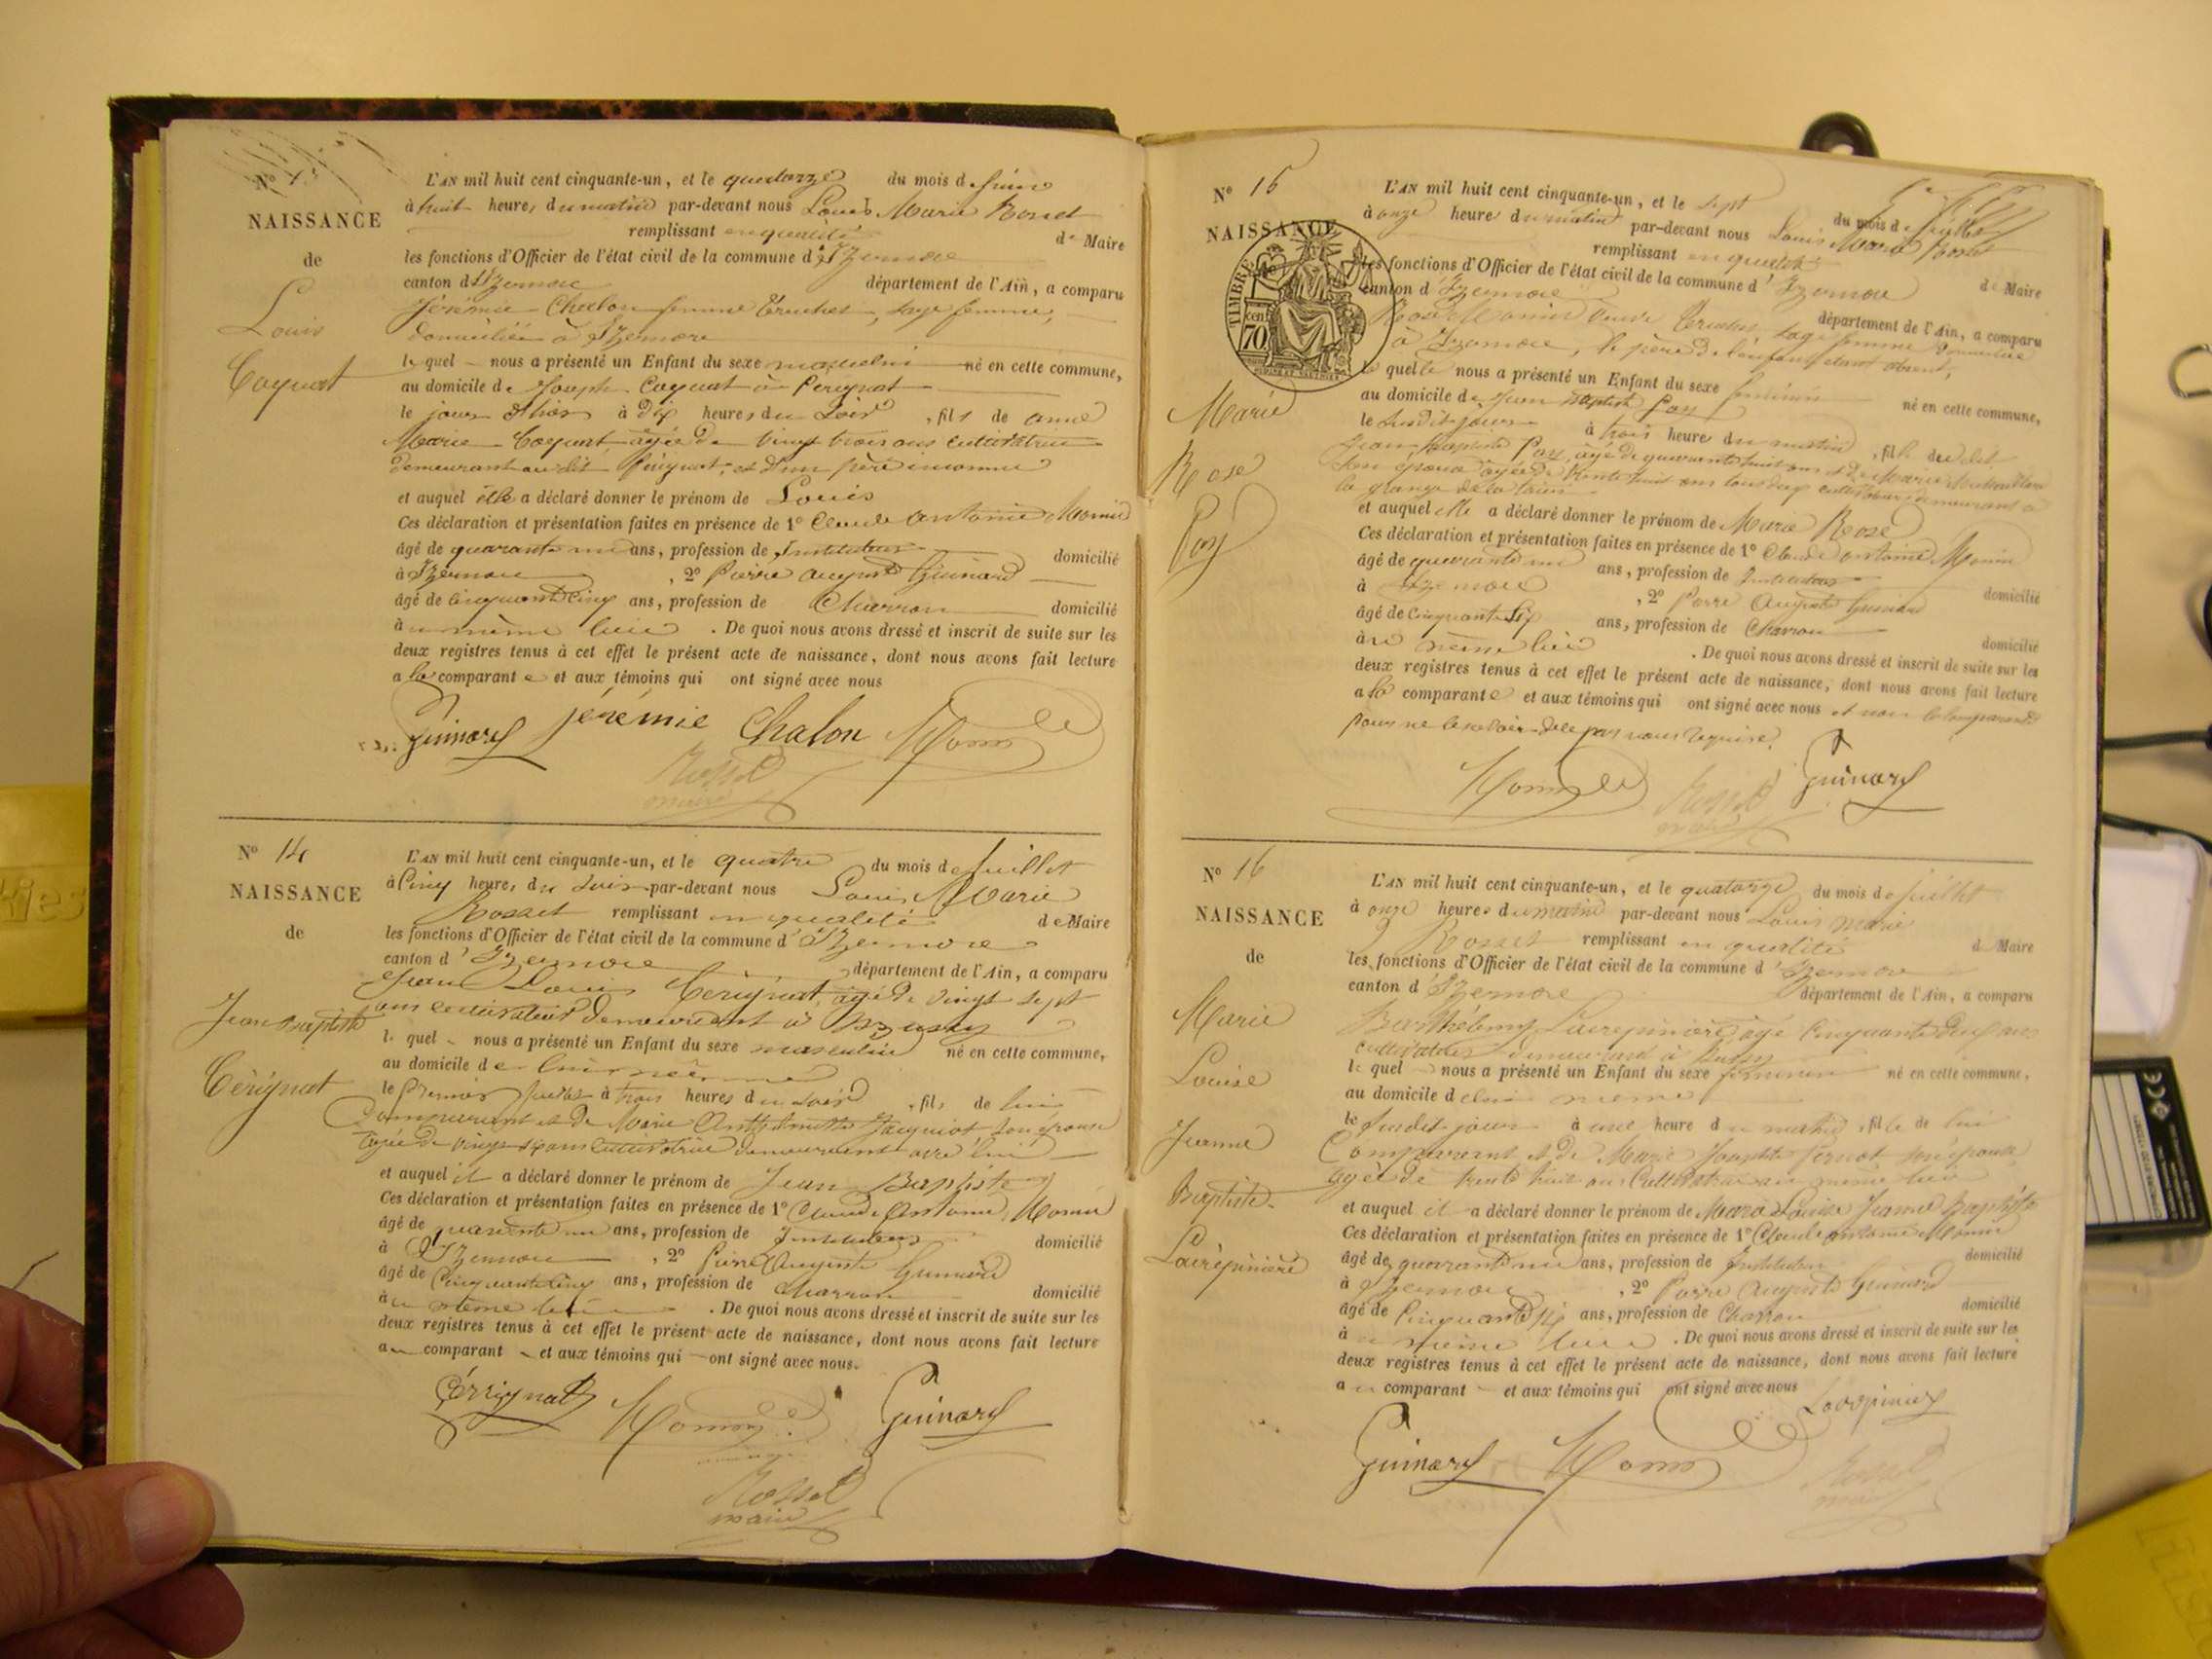 NAISSANCE
de
Louis
Coquat
L'AN mil huit cent cinquante-un, et le quatorze du mois de Juin
à huit heures du matin par-devant nous Louis Marie Rosset
remplissant en qualité de Maire
les fonctions d'Officier de l'état civil de la commune d'Izernore
canton d'Izernore département de l'Ain, a comparu
Jérémie Chalon femme Truchet, sage femme,
domiciliée à Izernore
le quel nous a présenté un Enfant du sexe masculin né en cette commune,
au domicile de Joseph Coquat à Perignat
le jour d'hier à dix heures du soir, fils de Anne
Marie Coquat, agée de vingt trois ans cultivatrice
demeurant au dit Pérignat, et d'un père inconnu
et auquel elle a déclaré donner le prénom de Louis
Ces déclaration et présentation faites en présence de 1° Claude Antoine Monin
âgé de quarante un ans, profession de Instituteur domicilié
à Izernore, 2° Pierre August Guinard
âgé de cinquante cinq ans, profession de Charron domicilié
à u même lieu. De quoi nous avons dressé et inscrit de suite sur les
deux registres tenus à cet effet le présent acte de naissance, dont nous avons fait lecture
a la comparante et aux témoins qui ont signé avec nous
Guinard jérémie Chalon Monin
Rosset
maire
N° 14
NAISSANCE
de
Jean Baptiste
Cérignat
L'AN mil huit cent cinquante-un, et le quatre du mois de Juillet
à Cinq heures du soir par-devant nous Louis Marie
Rosset remplissant en qualité de Maire
les fonctions d'Officier de l'état civil de la commune d'Izernore
canton d'Izernore département de l'Ain, a comparu
Jean Louis Cerignat, agé de vingt sept
ans cultivateur demeurant à Bussy
le quel nous a présenté un Enfant du sexe masculin né en cette commune,
au domicile de lui même
le Premier Juillet à trois heures du soir, fils de lui
Comparant et de Marie Jacquiot son épouse
agée de vingt ans cultivatrice demeurant avec lui
et auquel il a déclaré donner le prénom de Jean Baptiste
Ces déclaration et présentation faites en présence de 1° Claude Antoine Monin
âgé de quarante un ans, profession de Instituteur domicilié
à Izernore, 2° Pierre Auguste Guinard
âgé de Cinquante cinq ans, profession de charron domicilié
à u même lieu. De quoi nous avons dressé et inscrit de suite sur les
deux registres tenus à cet effet le présent acte de naissance, dont nous avons fait lecture
au comparant et aux témoins qui ont signé avec nous.
Cérignat Monin Guinard
Rosset
maire
N° 15
NAISSANCE
TIMBRE
70
cen
Marie
Rose
Pay
L'AN mil huit cent cinquante-un, et le sept du mois de Juillet
à onze heures du matin par-devant nous Louis Marie Rosset
remplissant en qualité de Maire
les fonctions d'Officier de l'état civil de la commune d'Izernore
canton d'Izernore département de l'Ain, a comparu
Rose Monin veuve sage femme domiciliée
à Izernore, le père de l'enfant étant absent,
le quelle nous a présenté un Enfant du sexe féminin né en cette commune,
au domicile de Jean Baptiste Pay
le susdit jour à trois heures du matin, fille du dit
Jean Baptiste Pay, agé de quarante huit ans et de Marie
son épouse agée de trente huit ans tous deux cultivateurs demeurant à
la grange
et auquel elle a déclaré donner le prénom de Marie Rose
Ces déclaration et présentation faites en présence de 1° Claude Antoine Monin
âgé de quarante un ans, profession de Instituteur domicilié
à Izernore, 2° Pierre Auguste Guinard
âgé de Cinquante Six ans, profession de Charron domicilié
à u même lieu. De quoi nous avons dressé et inscrit de suite sur les
deux registres tenus à cet effet le présent acte de naissance, dont nous avons fait lecture
a la comparante et aux témoins qui ont signé avec nous et non la comparante
pour ne le savoir de ce par nous requise.
Monin Rosset Guinard
maire
N° 16
NAISSANCE
de
Marie
Louise
Jeanne
Baptiste
Lairepinière
L'AN mil huit cent cinquante-un, et le quatorze du mois de Juillet
à onze heures du matin par-devant nous Louis Marie
Rosset remplissant en qualité de Maire
les fonctions d'Officier de l'état civil de la commune d'Izernore
canton d'Izernore département de l'Ain, a comparu
Barthélemy Lairepinière, agé Cinquante deux ans
cultivateur demeurant à Bussy
le quel nous a présenté un Enfant du sexe féminin né en cette commune,
au domicile de lui même
le susdit jour à une heure du matin, fille de lui
Comparant et de Marie Josephte son épouse
agée de trente huit ans Cultivatrice au même lieu
et auquel il a déclaré donner le prénom de Marie Louise Jeanne Baptiste
Ces déclaration et présentation faites en présence de 1° Claude Antoine Monin
âgé de quarante un ans, profession de Instituteur domicilié
à Izernore, 2° Pierre Auguste Guinard
âgé de Cinquante Six ans, profession de Charron domicilié
à u même lieu. De quoi nous avons dressé et inscrit de suite sur les
deux registres tenus à cet effet le présent acte de naissance, dont nous avons fait lecture
au comparant et aux témoins qui ont signé avec nous
Guinard Monin